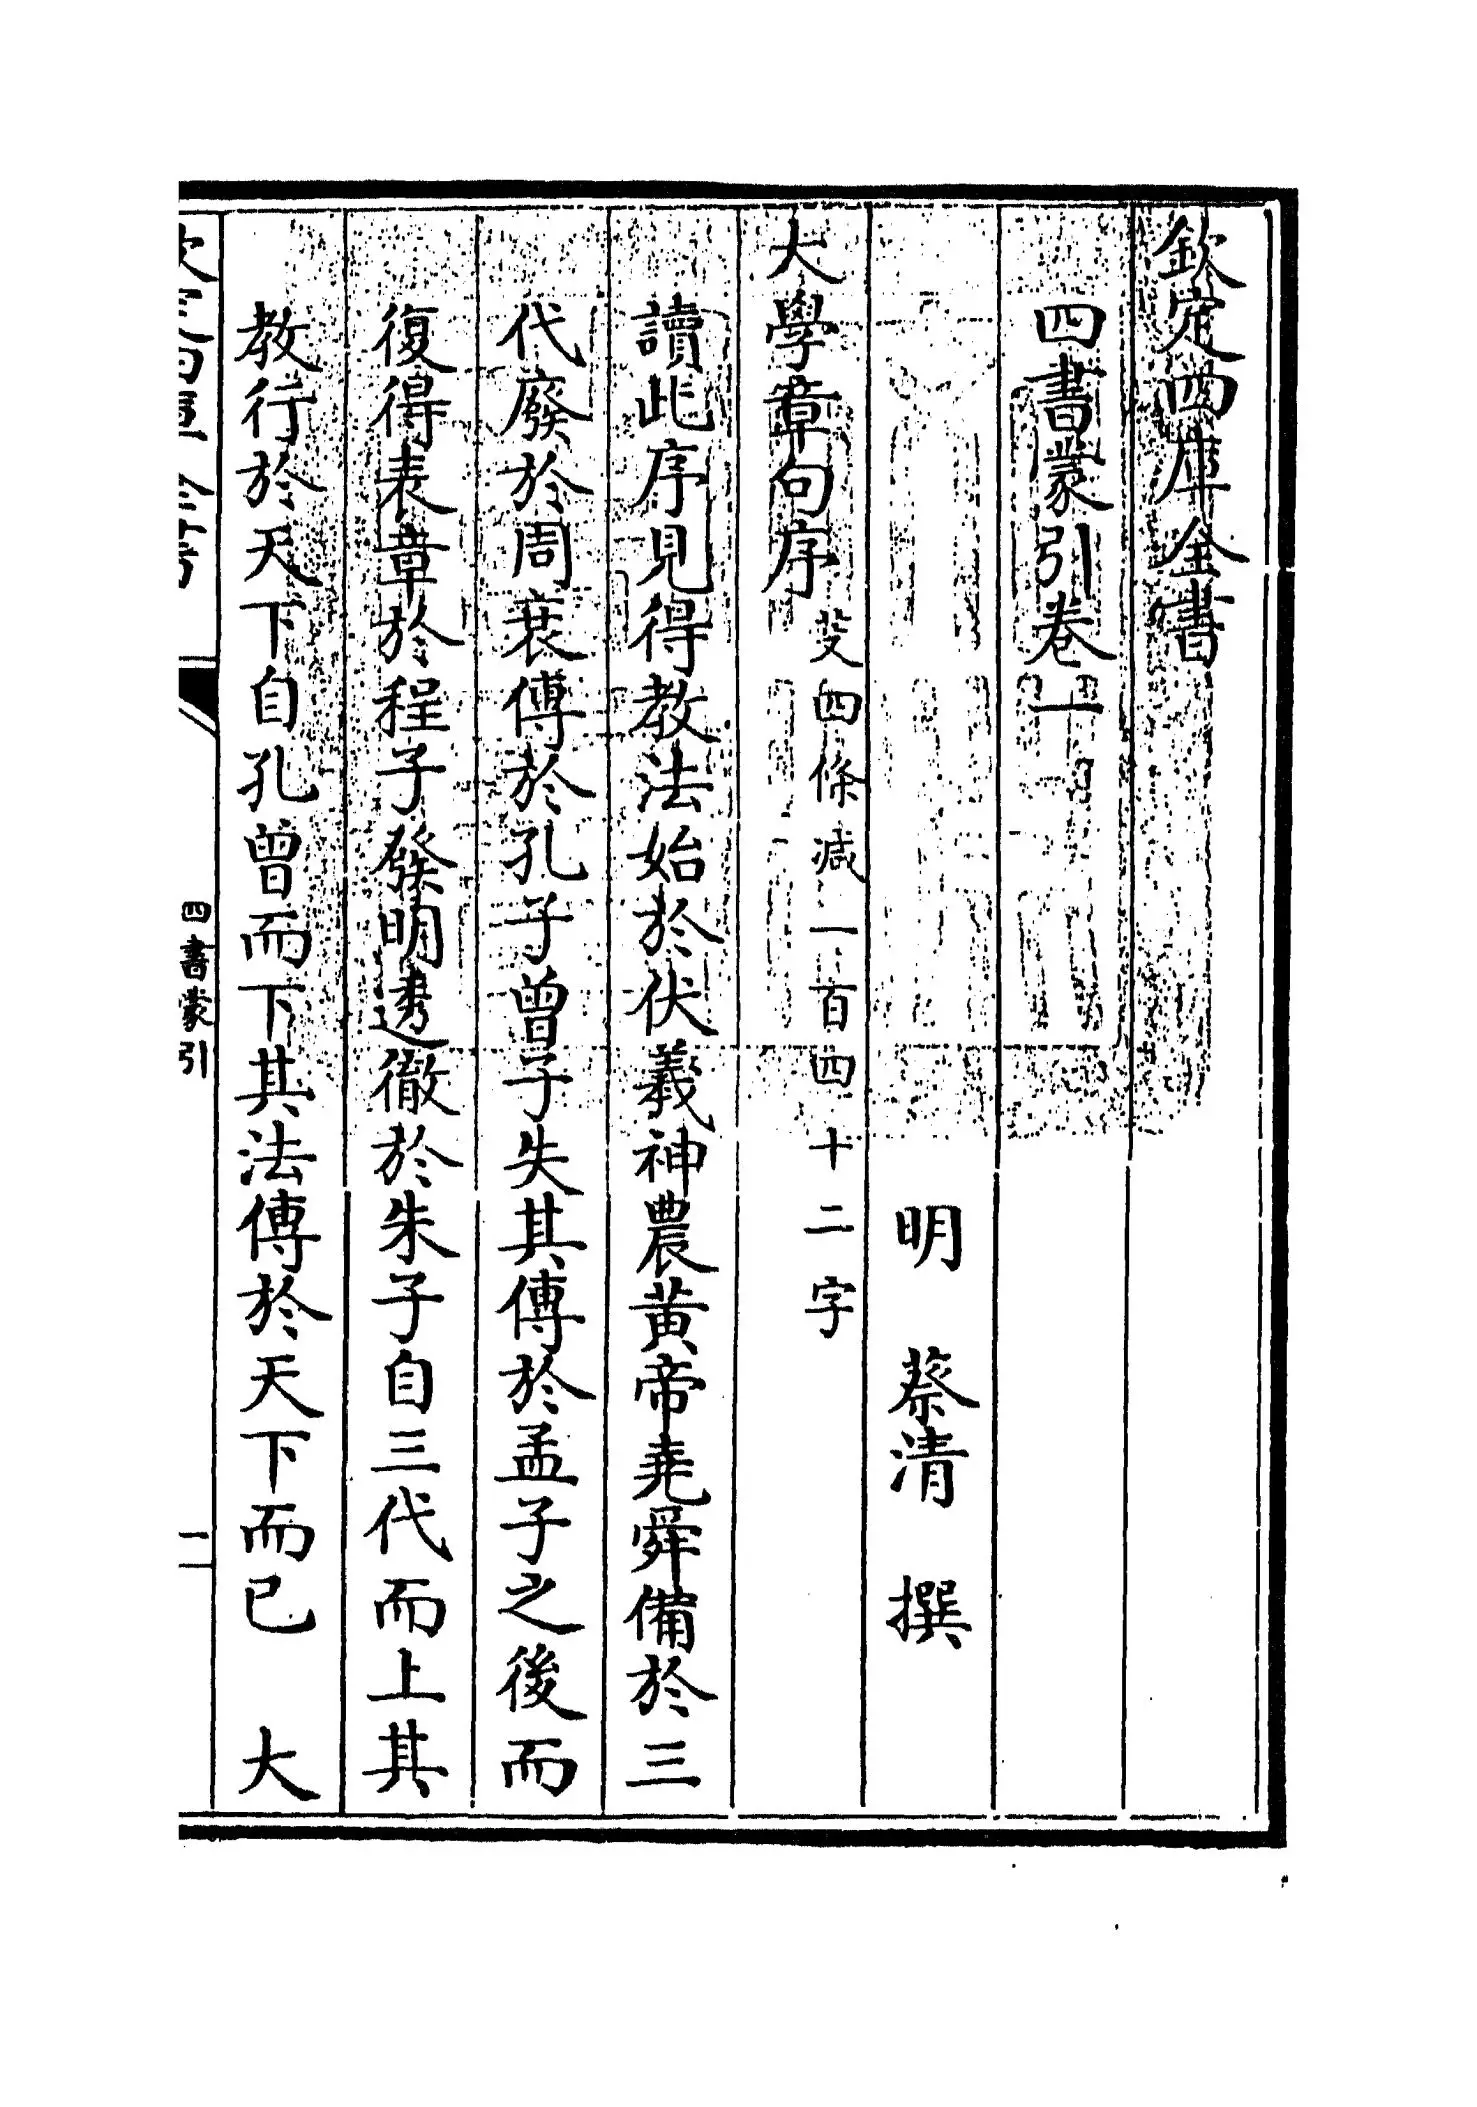 欽定四庫全書
四書蒙引卷一
明 蔡清 撰
大學章句序 芟四條減一百四十二字
讀此序見得教法始於伏羲神農黃帝堯舜備於三
代廢於周衰傳於孔子曾子失其傳於孟子之後而
復得表章於程子發明透徹於朱子自三代而上其
教行於天下自孔曾而下其法傳於天下而已 大
四書蒙引
一